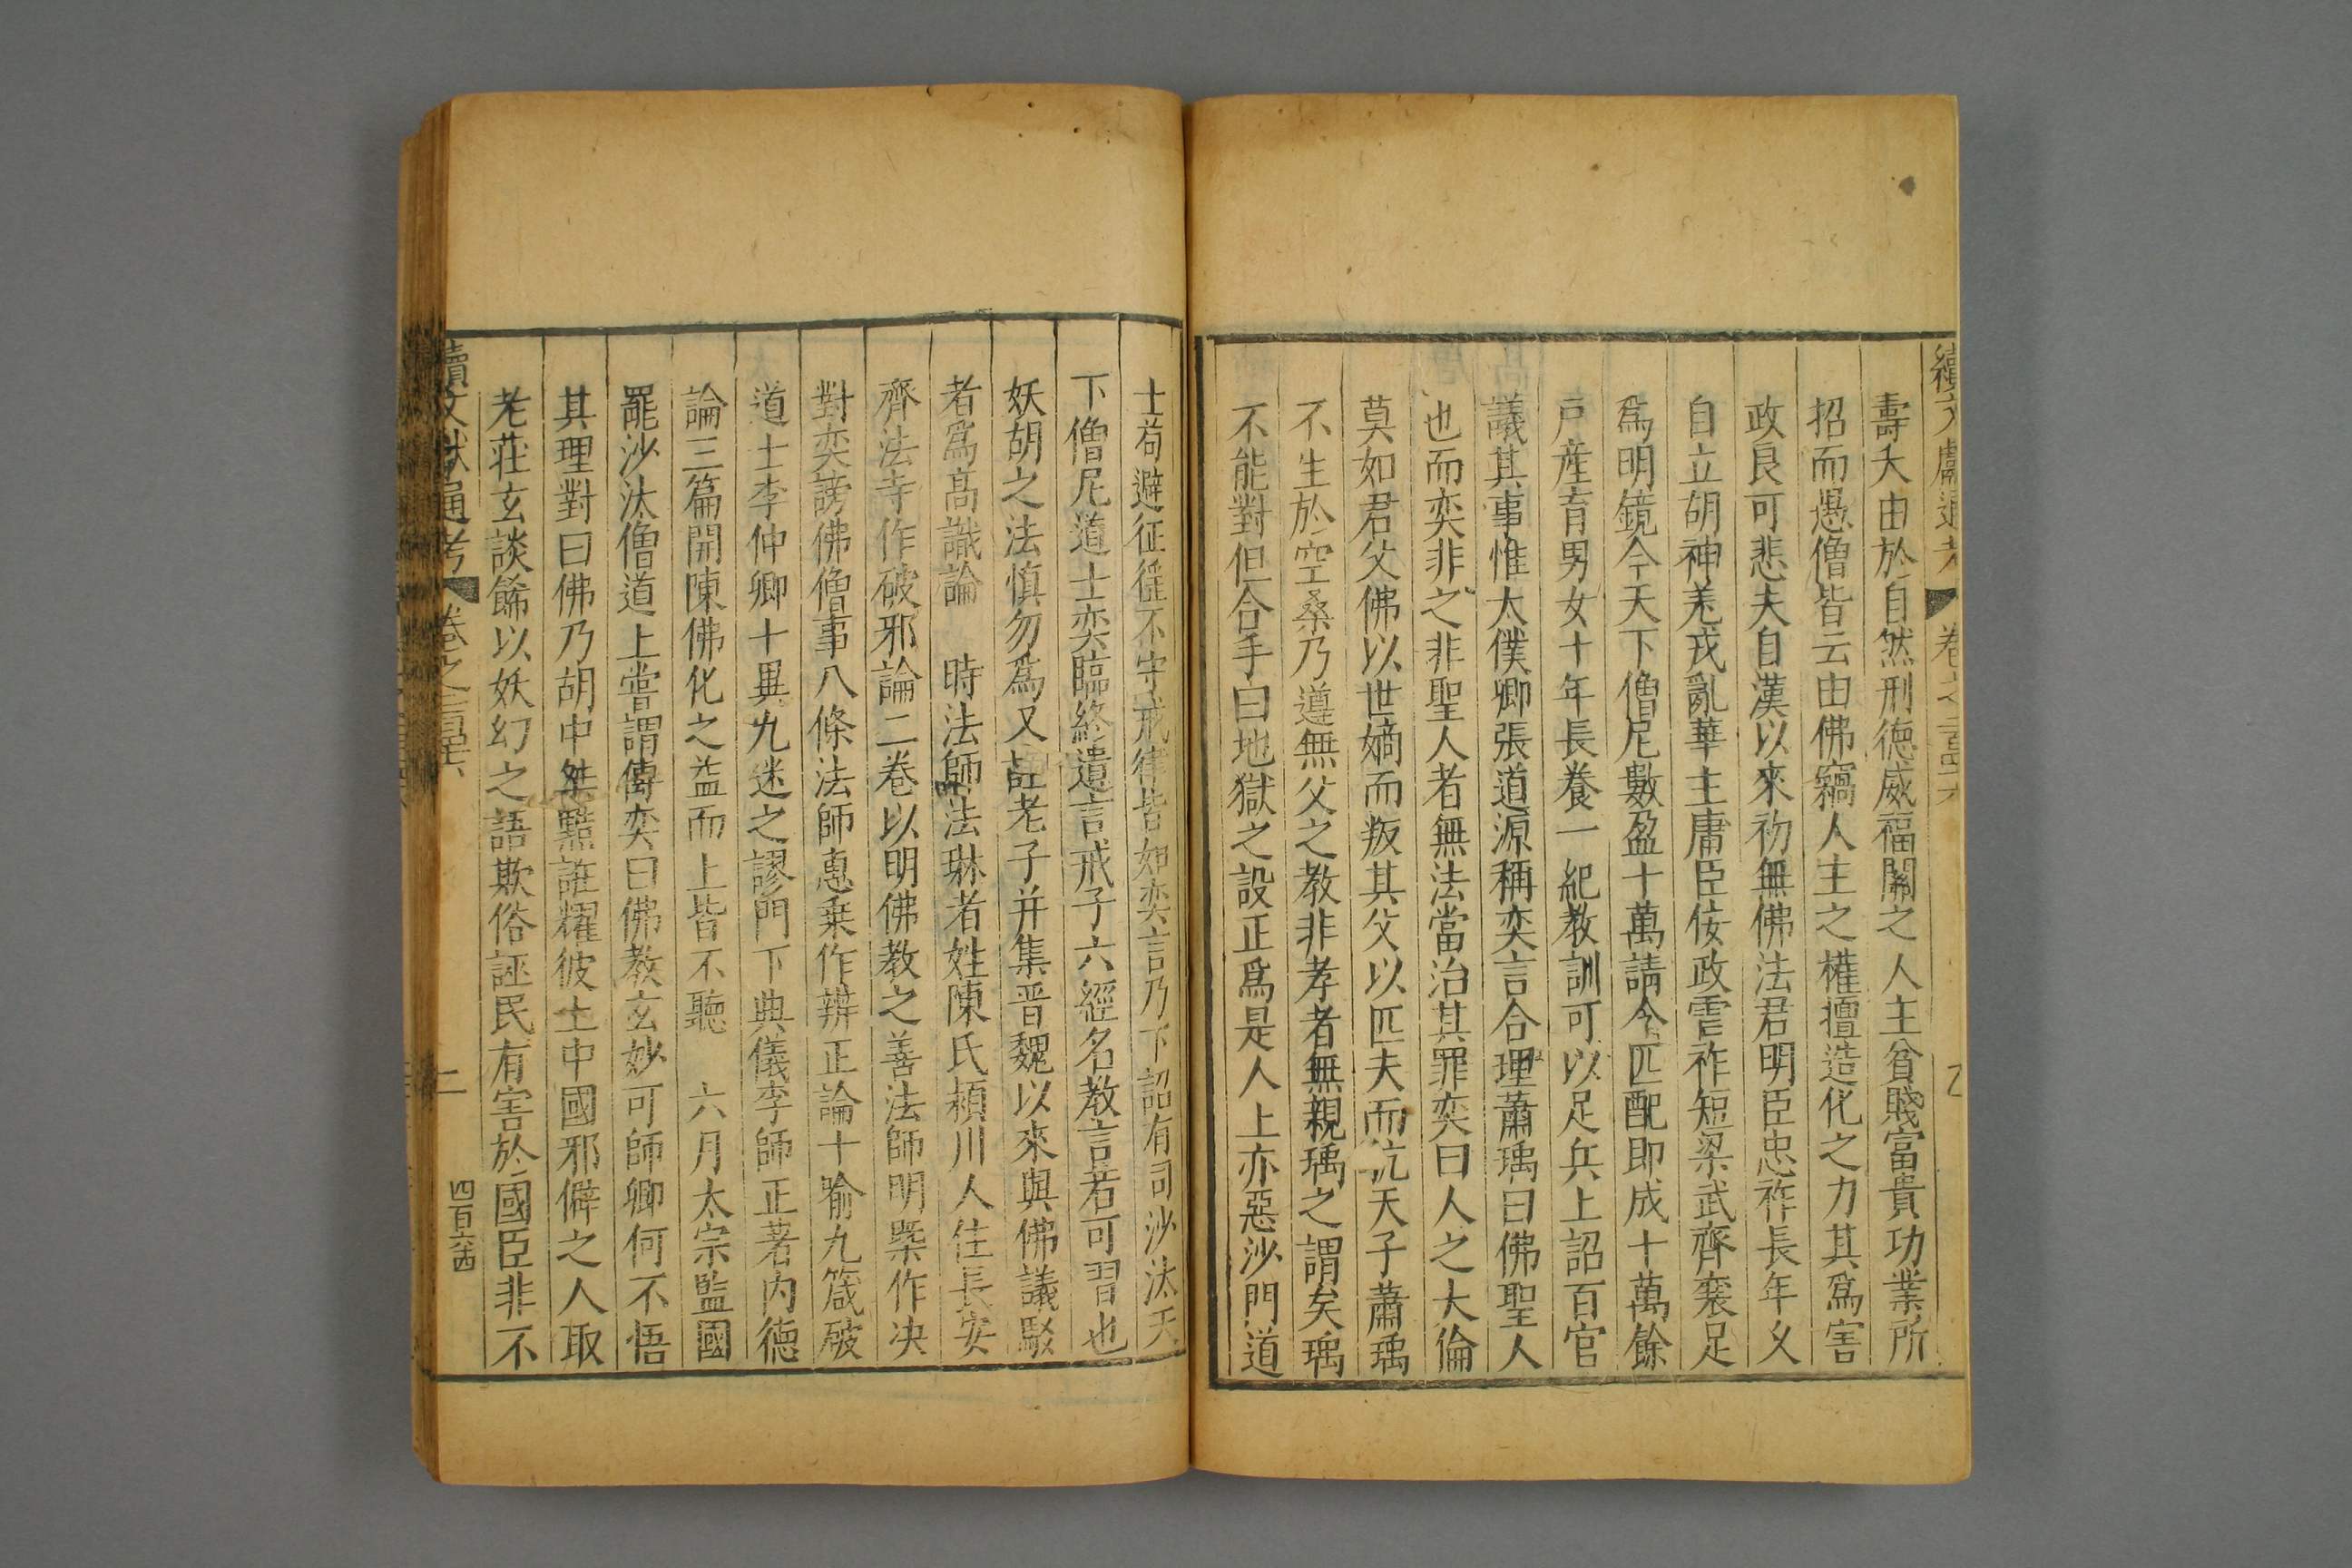 續文獻通考 卷之二百四十六
壽夭由於自然刑德威福關之人主貧賤富貴功業所
招而愚僧皆云由佛竊人主之權擅造化之力其爲害
政良可悲夫自漢以來初無佛法君明臣忠祚長年乆
自立胡神羌戎亂華主庸臣佞政虐祚短梁武齊襄足
爲明鏡今天下僧尼數盈十萬請令匹配即成十萬餘
戶產育男女十年長養一紀教訓可以足兵上詔百官
議其事惟太僕卿張道源稱奕言合理蕭瑀曰佛聖人
也而奕非之非聖人者無法當治其罪奕曰人之大倫
莫如君父佛以世嫡而叛其父以匹夫而抗天子蕭瑀
不生於空桑乃遵無父之教非孝者無親瑀之謂矣瑀
不能對但合手曰地獄之設正爲是人上亦惡沙門道
士苟避征徭不守戒律皆如奕言乃下詔有司沙汰天
下僧尼道士奕臨終遺言戒子六經名教言若可習也
妖胡之法慎勿爲又註老子并集晋魏以來與佛議駁
者爲高識論 時法師法琳者姓陳氏潁川人住長安
齊法寺作破邪論二卷以明佛教之善法師明槩作决
對奕謗佛僧事八條法師惠乗作辨正論十喻九箴破
道士李仲卿十異九迷之謬門下典儀李師正著内德
論三篇開陳佛化之益而上皆不聽 六月太宗監國
罷沙汰僧道上嘗謂傅奕曰佛教玄妙可師卿何不悟
其理對曰佛乃胡中桀黠誑耀彼土中國邪僻之人取
老莊玄談餙以妖幻之語欺俗誣民有害於國臣非不
續文獻通考 卷之 二 四百六十四